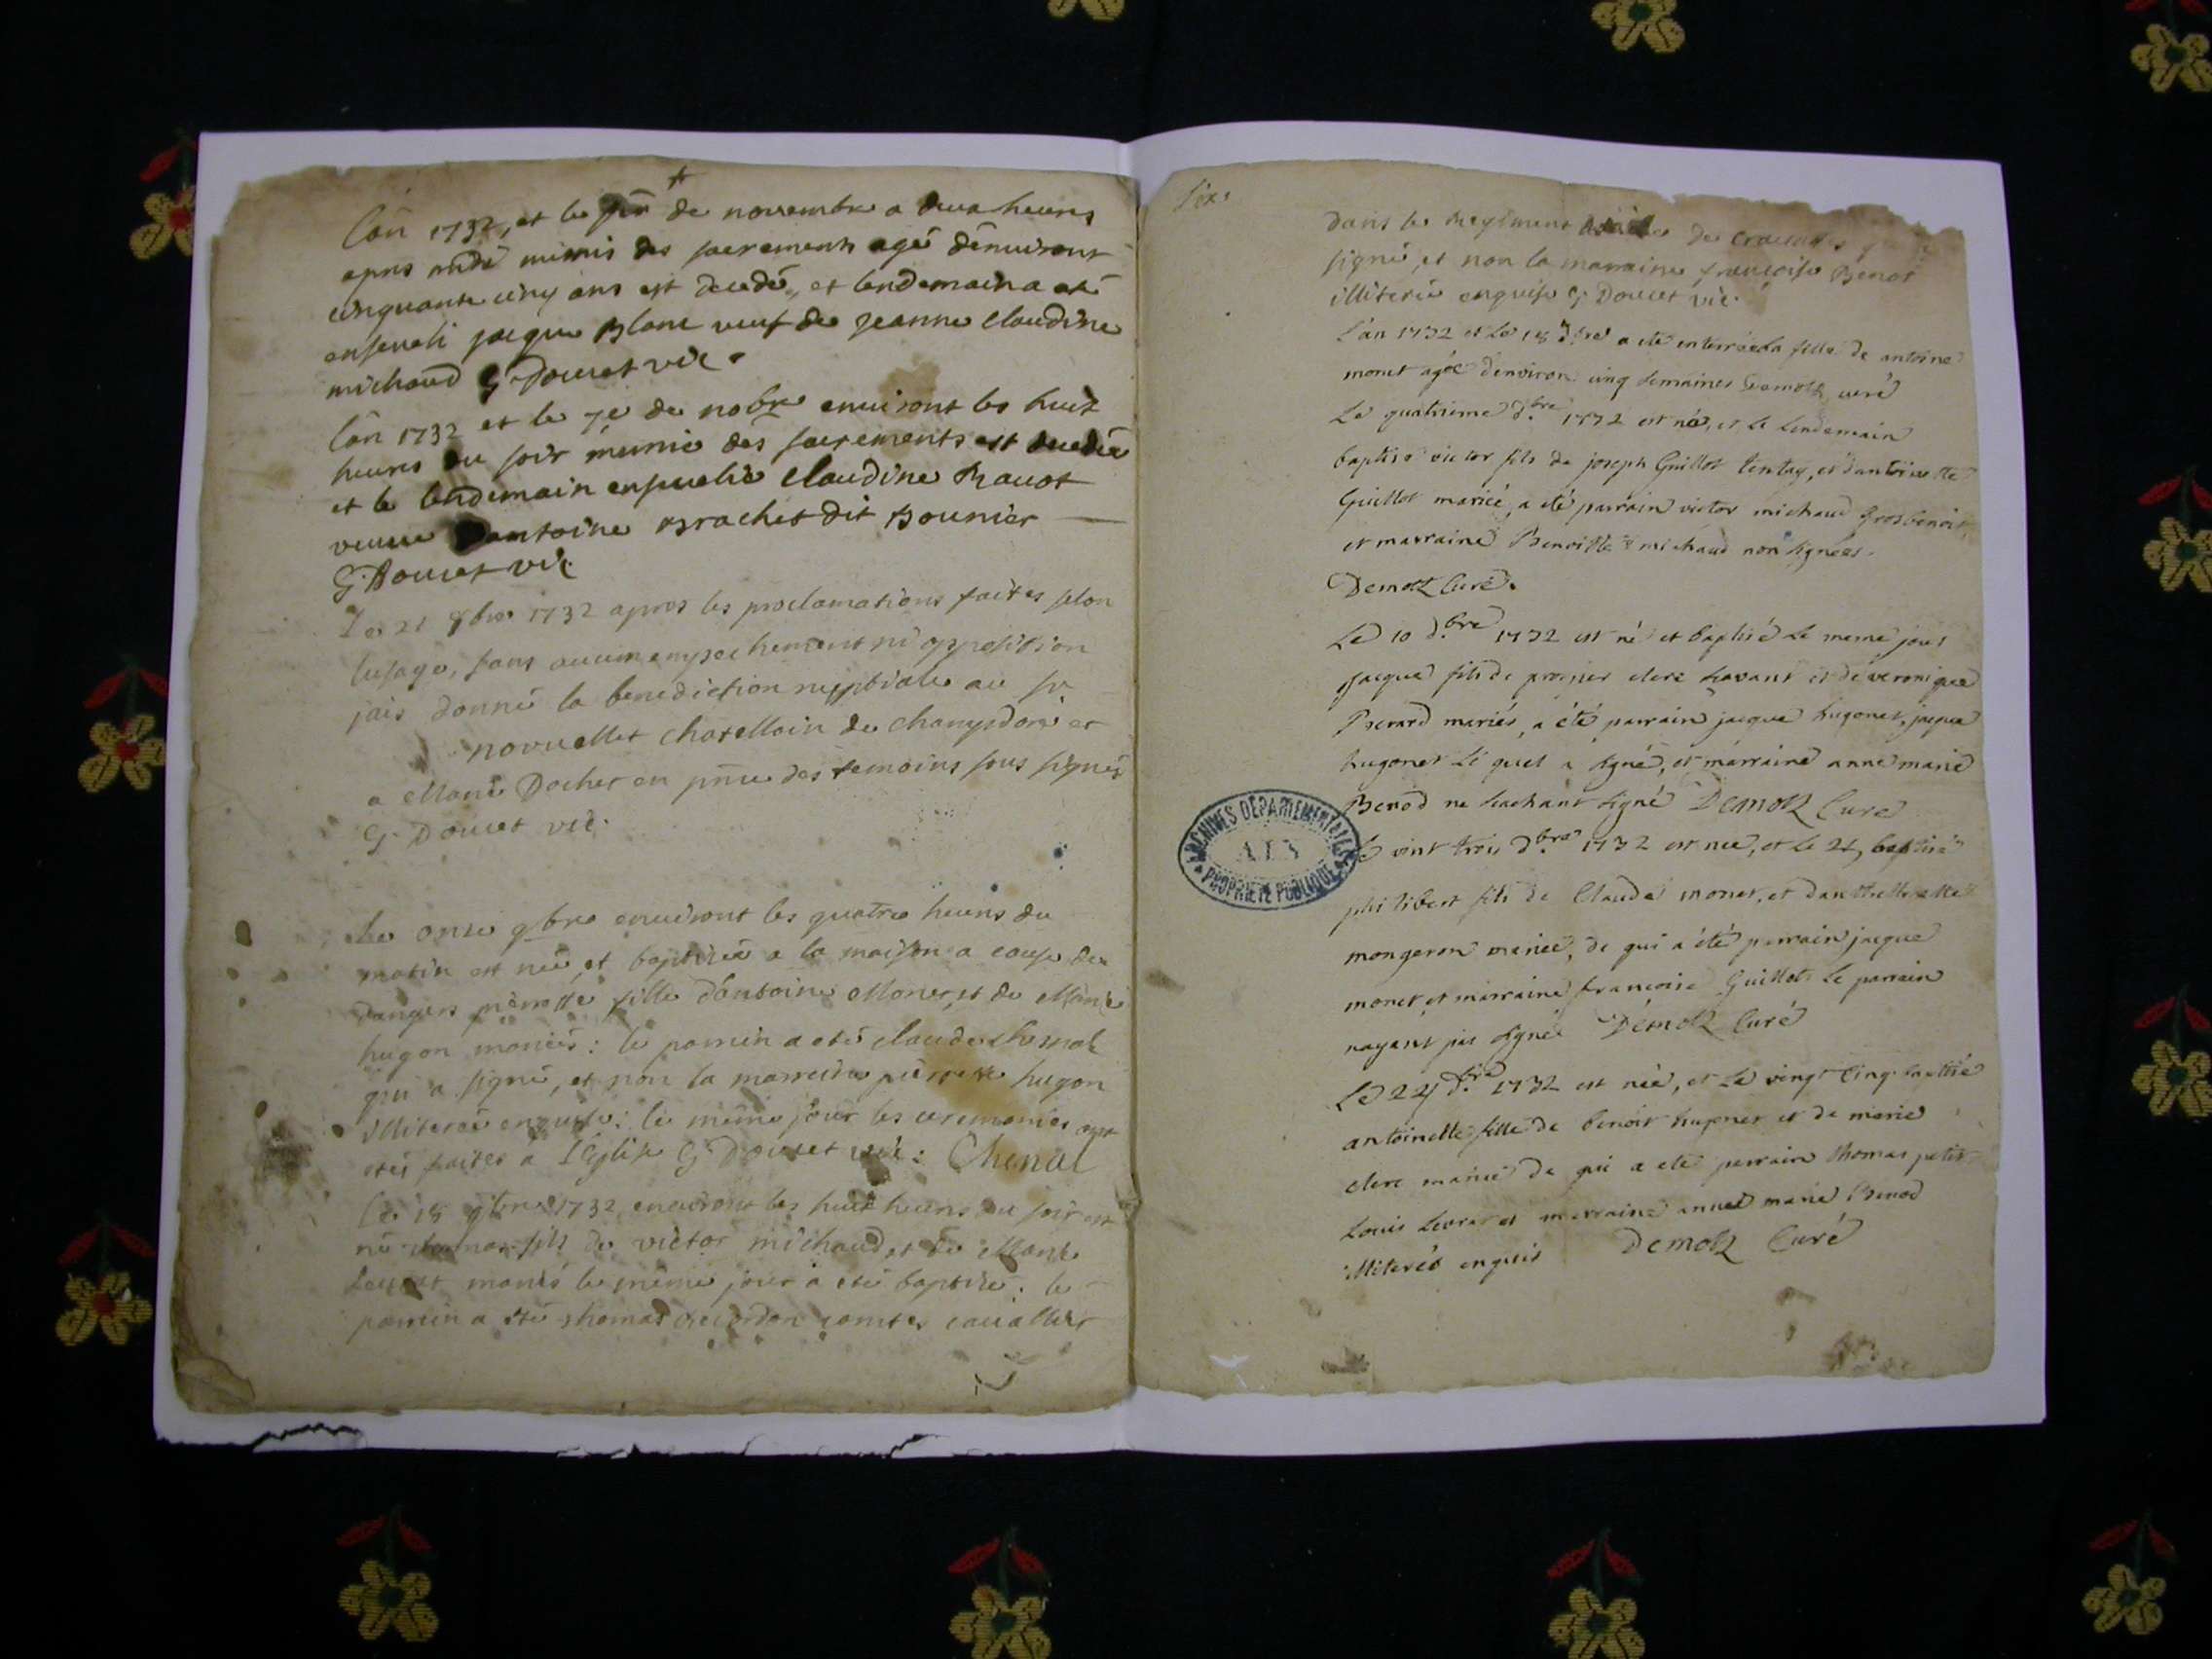 Lân 1732, et le pr̃ de novembre a deux heures
apres midi munis des sacrements agé dênuiront
cinquante cinq ans est decedé, et lendemain a eté
enseueli jacque Blanc veuf de jeanne claudine
michaud G Doucet vic.
Lân 1732 et le 7e de nobre enuiront les huit
heures du soir munie des sacrements est decedée
et le lendemain enseuelie claudine Rauot
veuue Dantoine Brachet dit Bounier
G. Doucet vic
Le 21 9bre 1732 apres les proclamations faites selon
lusage, sans aucun empechement ni oppolition
jais donné la benediction nuptiale au sr
nouuellet chatellain de champdoré et
a Marie Dochet en pñce des temoins sous signés
G. Doucet vic.
Le onze 9bre enuiront les quatre heures du
matin est neé, et baptisée a la maison a cause des
dangers pierrette fille dantoine Monet, et de Marie
hugon mariés : le parrein a eté claude chenal
qui a signé, et non la marreine pierrette hugon
illiterée enquise : le même jour les ceremonies ont
etés faites a LEglise G. Doucet vic : Chenal
Le 18 9bre 1732 enuiront les huit heures du soir est
né thomas fils de victor michaud, et de Marie
mariés le même jour a eté baptisé : le
parrein a eté thomas comte cauallier
Six
dans le Regiment de
signé, et non la marraine françoise Benot
illiterée enquise G Doucet vic.
L'án 1732 et Le 18 9.bre a eté enterrée la fille de antoine
monet agée denviron cinq semaines Demotz curé
Le quatrieme d.bre 1732 est né, et le lendemain
baptisé victor fils de joseph Guillot tentay, et dantoinette
Guillot mariée, a eté parrain victor michaud Grosbenoit,
et marraine Benoitte michaud non signées.
Demotz Curé.
Le 10 d.bre 1732 est né et baptisé Le meme jour
jacque fils de prosper clerc Savant et de veronique
Berard mariés, a été parrain jacque hugonet, jacque
hugonet Le quel a signé, et marraine anne marie
Benod ne sachant signé Demotz Curé
Le vint trois d.bre 1732 est nee, et Le 24 baptisé
philibert fils de Claude monet, et
mongeron mariée, de qui a été parrain jacque
monet et marraine francoise Guillot Le parrain
nayant pas signée Demotz Curé
Le 24 d.bre 1732 est née, et Le vingt Cinq baptisée
antoinette fille de benoit hugonet et de marie
clerc mariée de qui a eté parrain thomas petit
Louis et marraine annee marie Benod
illiterés enquis Demotz Curé
ARCHIVES DEPARTEMENTALES
AIN
PROPRIETE PUBLIQUE